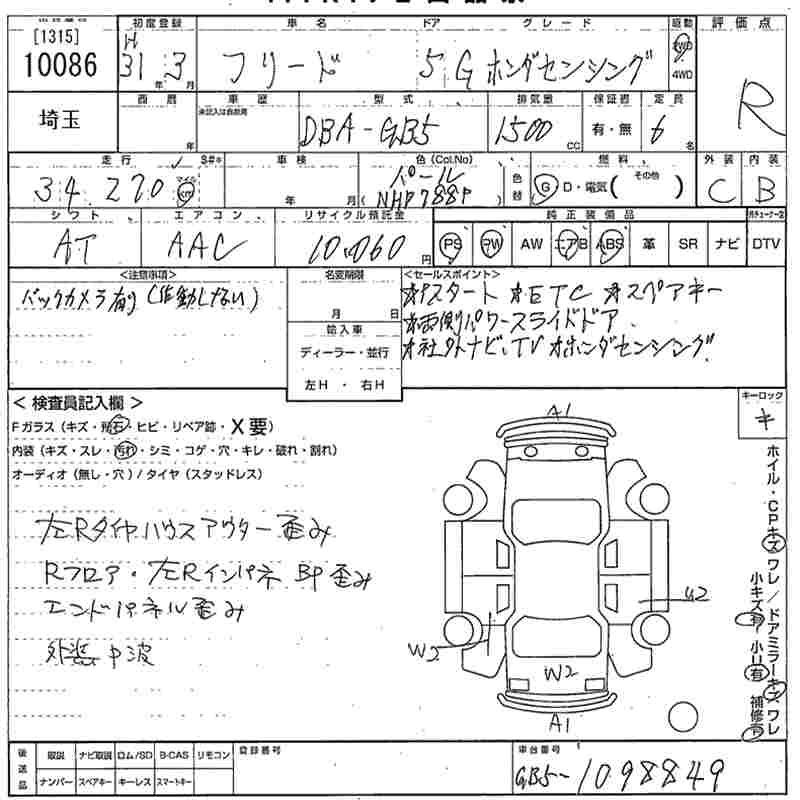 [1315] 初度登録 車名 ドア グレード 駆動 評価点
10086 H 31年 3月 フリード 5 G ホンダセンシング 2WD 4WD R
埼玉 西暦 年 車歴 未記入は自家用 型式 DBA-GB5 排気量 1500 CC 保証書 有・無 定員 6名
走行 S#* 車検 色(Col.No) 燃料 外装 内装
34,270 マイル km 年 月 パール (NHP788P) 色替 G D・電気 (その他 ) C B
シフト エアコン リサイクル預託金 純正装備品
AT AAC 10,060円 PS PW AW エアB ABS 革 SR ナビ DTV
<注意事項> 名変期限 <セールスポイント>
バックカメラ有(作動しない) 月 日 *Pスタート *ETC *スペアキー
輸入車 *両側パワースライドドア
ディーラー・並行 *社外ナビ、TV *ホンダセンシング
左H ・ 右H
<検査員記入欄> キーロック
Fガラス(キズ・飛石・ヒビ・リペア跡・X要) キ
内装(キズ・スレ・汚れ・シミ・コゲ・穴・キレ・破れ・割れ)
オーディオ(無し・穴)/タイヤ(スタッドレス)
左Rタイヤハウスアウター歪み
Rフロア・左Rインパネ BP歪み
エンドパネル歪み
外装 中波
A1
U2
W2
W2
A1
ホイル・CPキズ ワレ/ドアミラーキズ ワレ
小キズ有 小U有 補修有
後送品 取説 ナビ取説 ロム/SD B-CAS リモコン 登録番号 車台番号
ナンバー スペアキー キーレス スマートキー GB5-1098849